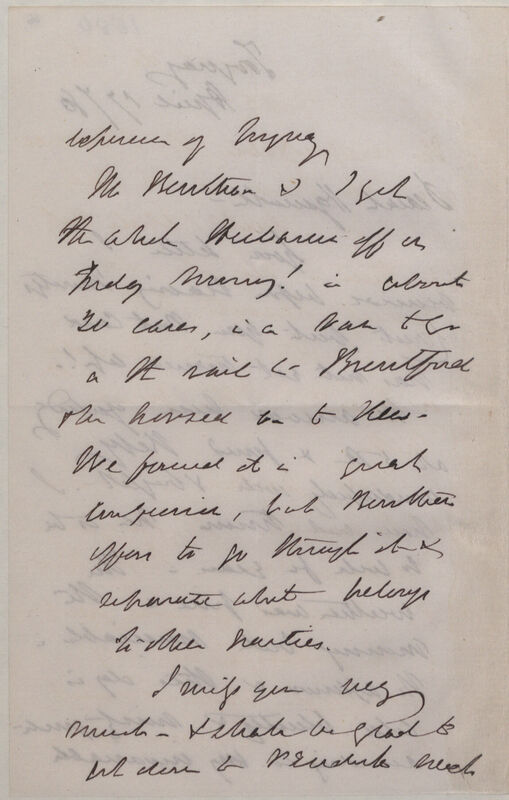 experience of
Mr Bentham & I got
the whole Herbarium off on
Friday morning! in about
30 cases, in a van to go
on the rail to Brentford
& be horsed on to Kew.
We found it in great
confusion, but Bentham
offers to go through it &
separate what belongs
to other parties.
I miss you very
much & shall be glad to
sit down to week